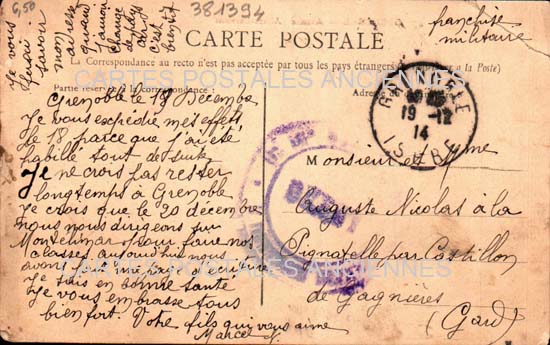 6,50
381394
Je vous
ferai
savoir
mon
adresse
quand
j'aurai
changé
de
c'est
bientôt
franchise
militaire
CARTE POSTALE
La Correspondance au recto n'est pas acceptée par tous les pays étrangers à la Poste)
CARTES POSTALES ANCIENNES
Partie réservée à la correspondance
Adresse du
Grenoble le 19 Décembre
Je vous expédie mes effets
le 18 parce que j'ai été
habillé tout de suite
Je ne crois pas rester
longtemps à Grenoble
je crois que le 20 décembre
nous nous dirigeons sur
Montelimar pour faire nos
classes aujourd'hui nous
avons
Je suis en bonne santé
Je vous embrasse tous
bien fort. Votre fils qui vous aime
Marcel
GRENOBLE
19 -12
14
ISÈRE
Monsieur et Mme
Auguste Nicolas à la
Pignatelle par Castillon
CARTES POSTALES ANCIENNES
de Gagnières
(Gard)